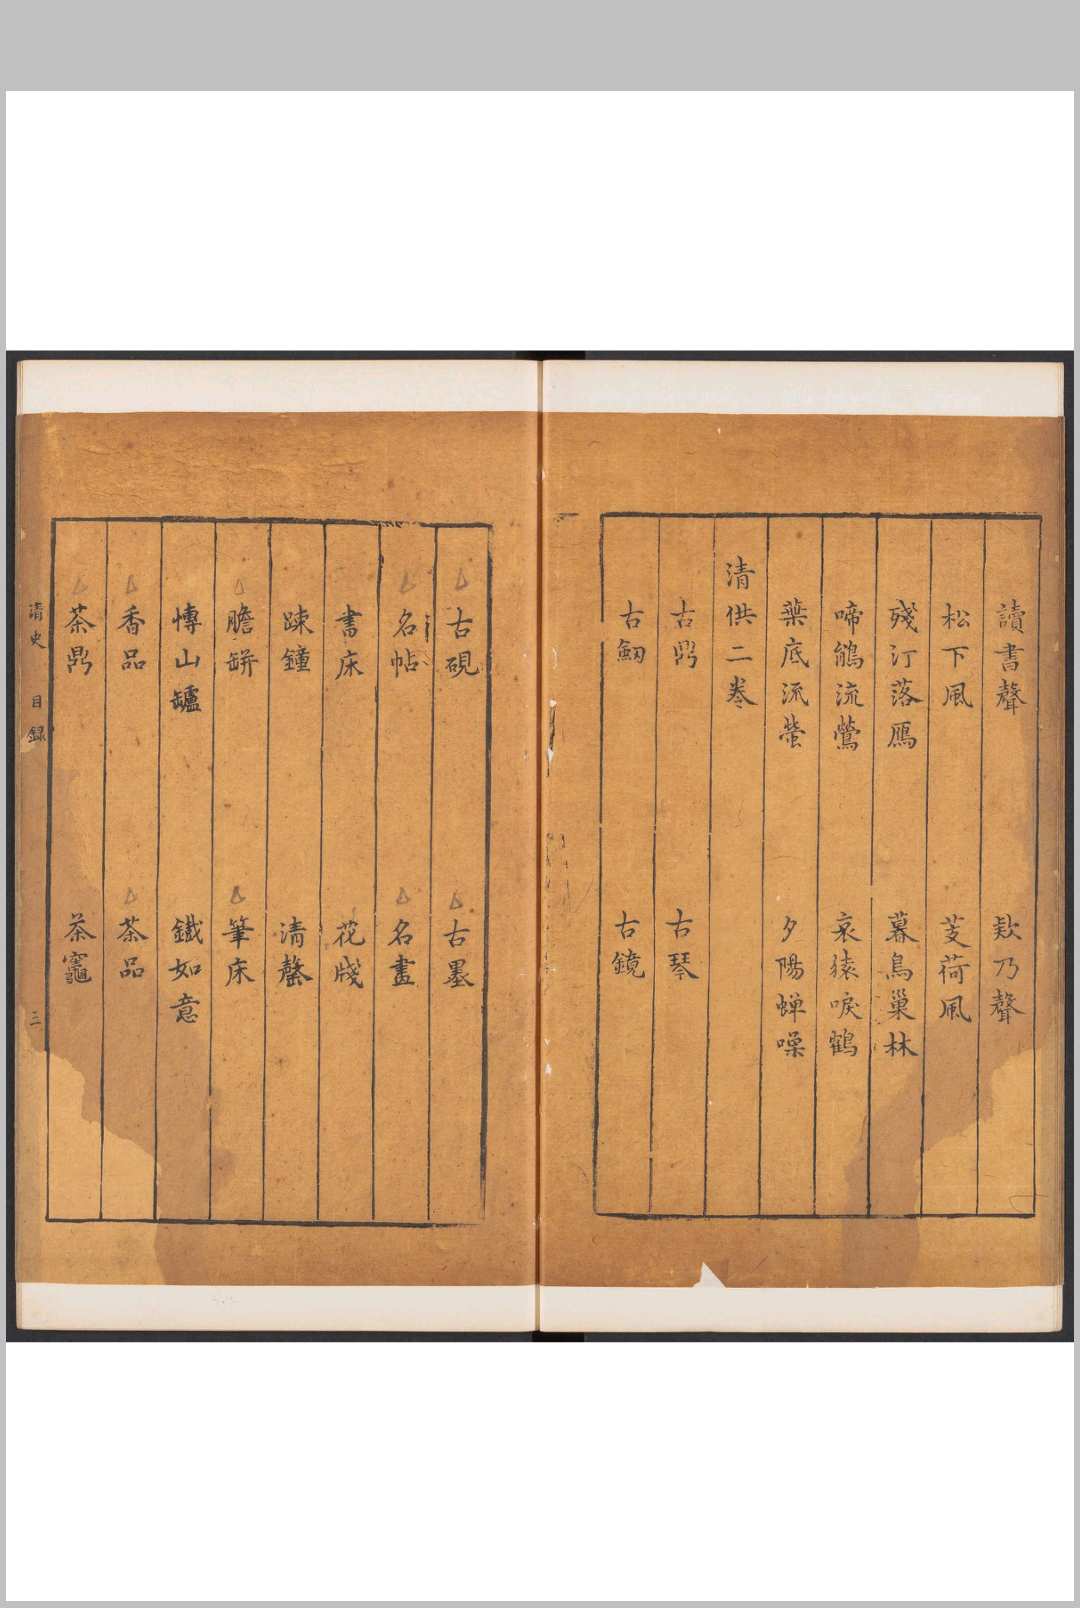 讀書聲 欵乃聲
松下風 芰荷風
殘汀落鴈 暮鳥巢林
啼鵑流鶯 哀猿唳鶴
葉底流螢 夕陽蟬噪
清供二卷
古鼎 古琴
古劒 古鏡
古硯 古墨
名帖 名畫
書床 花牋
踈鐘 清磬
膽缾 筆床
愽山罏 鐵如意
香品 茶品
茶鼎 茶竈
清史 目録 三